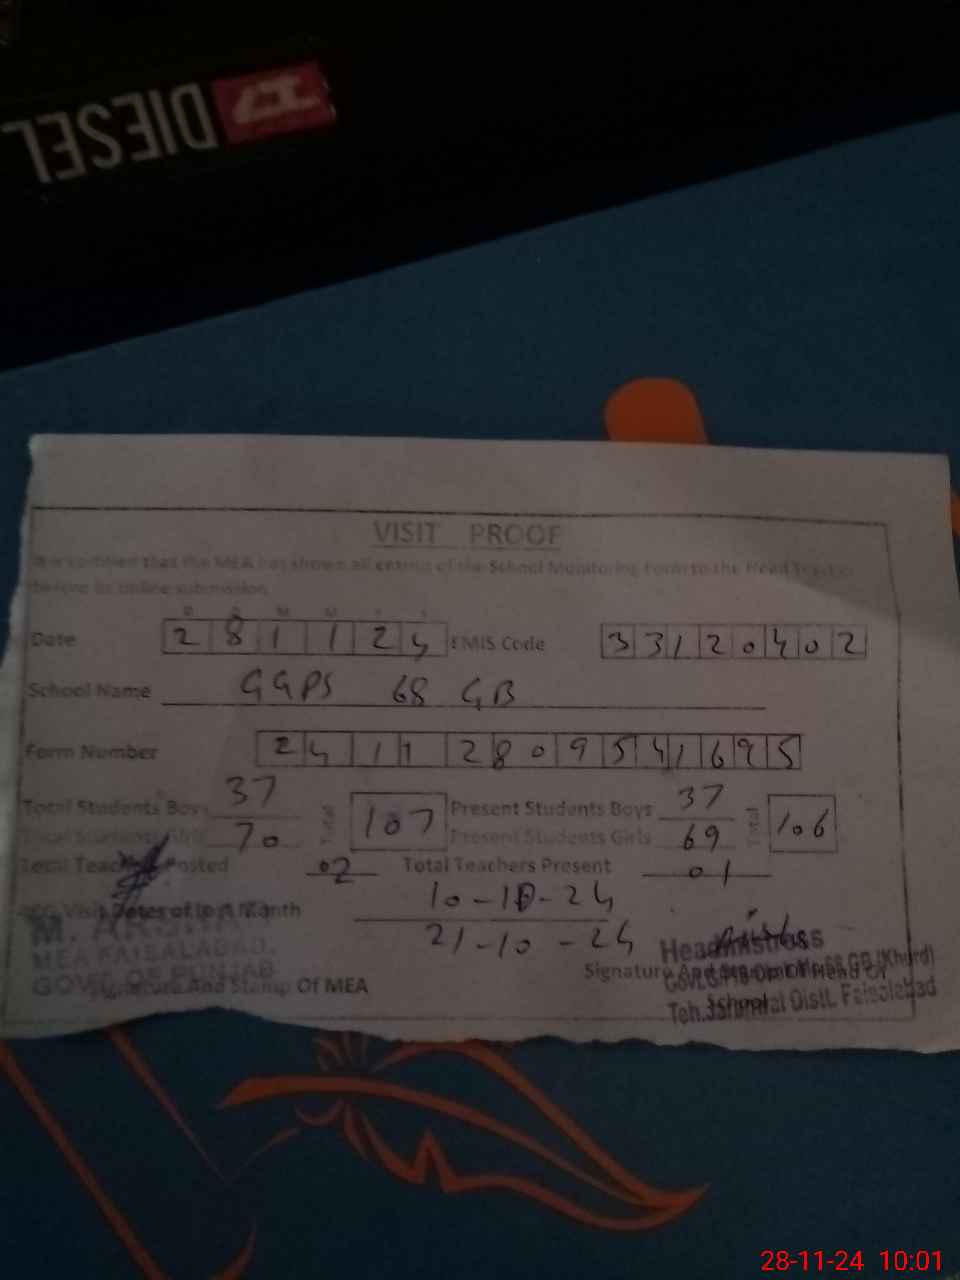 DIESEL
VISIT PROOF
It is certified that the MEA has shown all entries of the School Monitoring Form to the Head Teacher
before its online submission
D D M M Y Y
Date 2 8 1 1 2 4 EMIS Code 3 3 1 2 0 4 0 2
School Name GGPS 68 GB
Form Number 2 4 1 1 2 8 0 9 5 4 1 6 9 5
Total Students Boys 37 Total 107 Present Students Boys 37 Total 106
Total Students Girls 70 Present Students Girls 69
Total Teachers Posted 02 Total Teachers Present 01
Visit Dates of Month 10-10-24
21-10-24
M. ARSHAD
MEA FAISALABAD,
GOVT. OF PUNJAB
Signature And Stamp Of MEA
Headmistress
Signature And Stamp Of Head Of
School
68 GB (Khurd)
Teh. Distt. Faisalabad
28-11-24 10:01